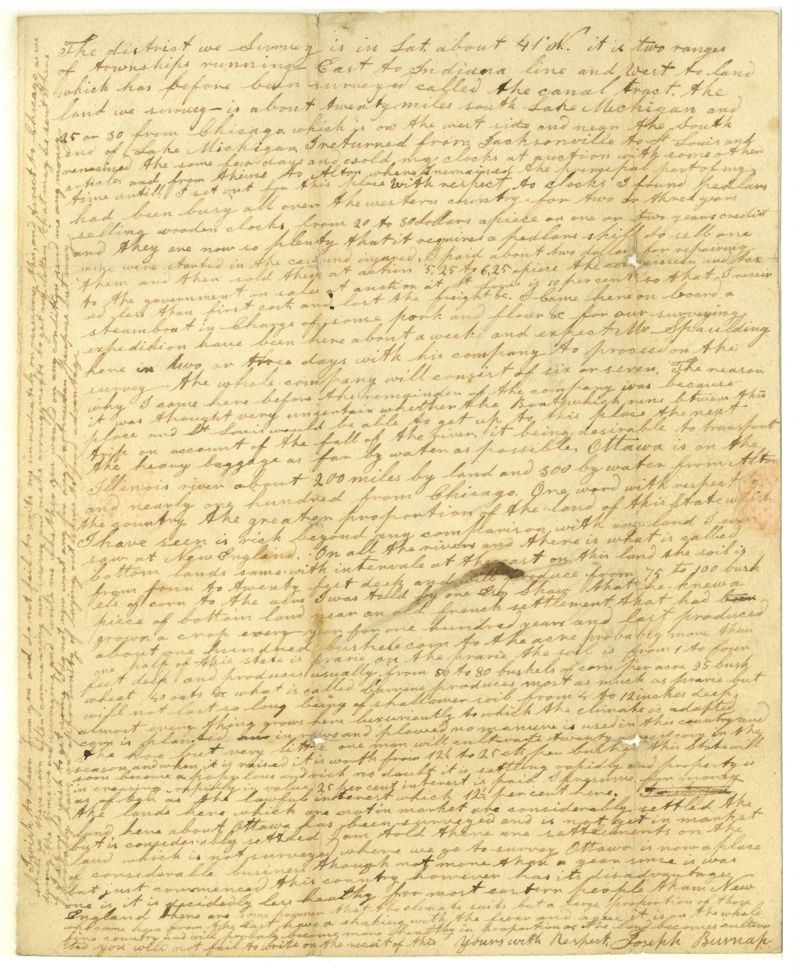 The district we Survey is in Lat. about 41°N. it is two ranges
of townships running East to Indiana line and West to land
which has before been surveyed called the canal tract. the
land we survey is about twenty miles south Lake Michigan and
25 or 30 from Chicago which is on the west side and near the South
end of Lake Michigan, I returned from Jacksonville to St Louis and
remained the some few days and sold my clocks at auction with some other
articles and from thence to Alton where I remained the principal part of my
time untill I set out for this place With respect to clocks I found Pedlars
had been busy all over the western country for two or three years
selling wooden clocks, from 20 to 30 dollars apiece on one or two years credit
and they are now so plenty that it requires a pedlars skill to sell one
mine were started in the case and injured. I paid about two dollars for repairing
them and then sold them at action 5,25 to 6,25 apiece the commission and tax
to the government on sales at auction at St Louis is 10 per cent so that I receiv
ed less than first cost and lost the freight &c. I came here on board a
steamboat in Charge of some pork and flour &c for our surveying
expedidion have been here about a week and expect Mr Spaulding
here in two or three days with his company to proceed on the
survey the whole company will consist of six or seven. The reason
why I came here before the remainder of the company was because
it was thought very uncertain whether the Boat which runs between this
place and St Louis would be able to get up to this place the next
trip on account of the fall of the river, it being desirable to transport
the heavy baggage as far by water as possible. Ottawa is on the
Illinois river about 200 miles by land and 300 by water from Alton
and nearly one hundred from Chicago. One word with respect to
the country the greater proportion of the land of this State which
I have seen is rich beyond any comparison with any land I ever
saw at New England. On all the rivers and there is what is called
bottom lands same with intervale at the east on this land the soil is
from four to twenty feet deep and will produce from 75 to 100 bush
els of corn to the acre I was told by one Shaw that he knew a
piece of bottom land near an old french settlement that had been
grown a crop every year for one hundred years and last produced
about one hundred bushels corn to the acre probably more than
one half of this state is prarie on the prarie the soil is from 1 to four
feet deep and produces usually from 50 to 80 bushels of corn per acre 25 bush
wheat 40 oats &c what is called barrens produces most as much as prarie but
will not last so long being of shallower soil from 4 to 12 inches deep
almost every thing grows here luxuriently to which the climate is adapted
corn is planted in rows and plowed no manure is used in this country and
the hoe but very little one man will cultivate twenty acres of corn in the
season, and when it is raised it is worth from 12½ to 25 cts. per bushel This State will
soon become a populous and rich no doubt it is settling rapidly and property is
increasing rapidly in value 25 per cent interest is paid I presume for money
as often as the lawful interest which 12½ per cent here.
the lands here which are not in market are considerably settled the
land here about Ottawa has been surveyed and is not yet in market
but is considerably settled I am told there are settlements on the
land which is not surveyed where we go to survey Ottawa is now a place
of considerable business though not more than a year since is was
but just commenced this country however has its disadvantages
one is it is decidedly less healthy for most eastern people than New
England there are some persons that the climate suits but a large proportion of those
who come here from the East have a shaking with the fever and ague it is on the whole
fine country and will probaly become more healthy in proportion as the land becomes cultiva
ted you will not fail to write on the receit of this Yours with Respect, Joseph Burnap